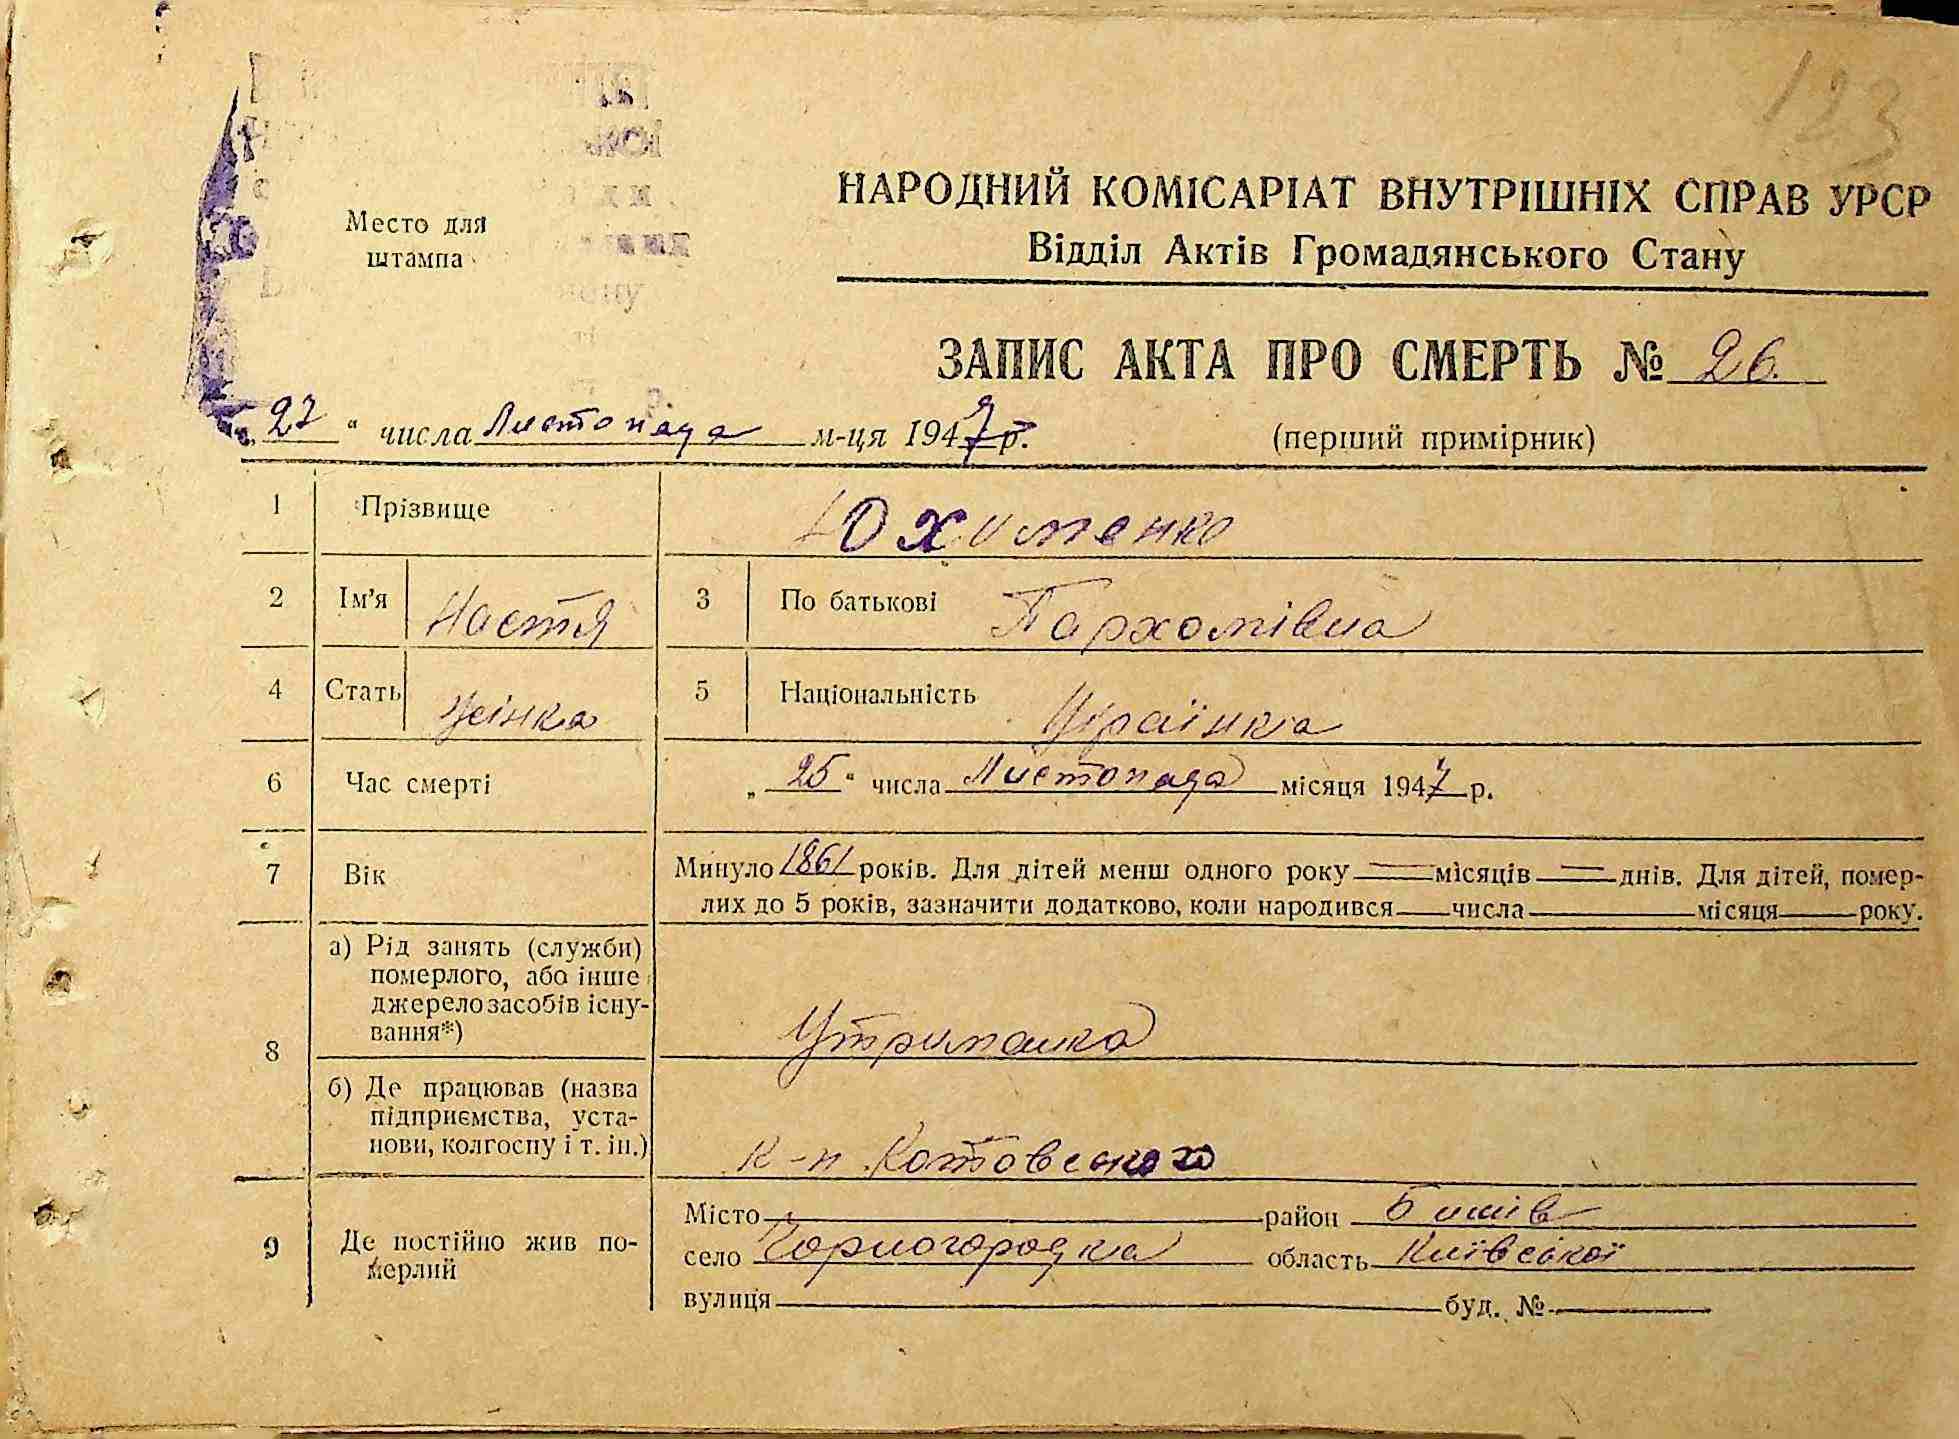 123
НАРОДНИЙ КОМІСАРІАТ ВНУТРІШНІХ СПРАВ УРСР
Відділ Актів Громадянського Стану
Место для
штампа
ЗАПИС АКТА ПРО СМЕРТЬ № 26.
„27“ числа Листопада м-ця 1947 р.
(перший примірник)
1 Прізвище Юхименко
2 Ім'я Настя 3 По батькові Пархомівна
4 Стать Жінка 5 Національність Українка
6 Час смерті „25“ числа Листопада місяця 1947 р.
7 Вік Минуло 1861 років. Для дітей менш одного року — місяців — днів. Для дітей, помер-
лих до 5 років, зазначити додатково, коли народився числа місяця року.
8 а) Рід занять (служби)
померлого, або інше
джерело засобів існу-
вання*) Утриманка
б) Де працював (назва
підприємства, уста-
нови, колгоспу і т. ін.) К-п Котовського
9 Де постійно жив по-
мерлий
Місто район Бишів
село Чорногородка область Київської
вулиця буд. №